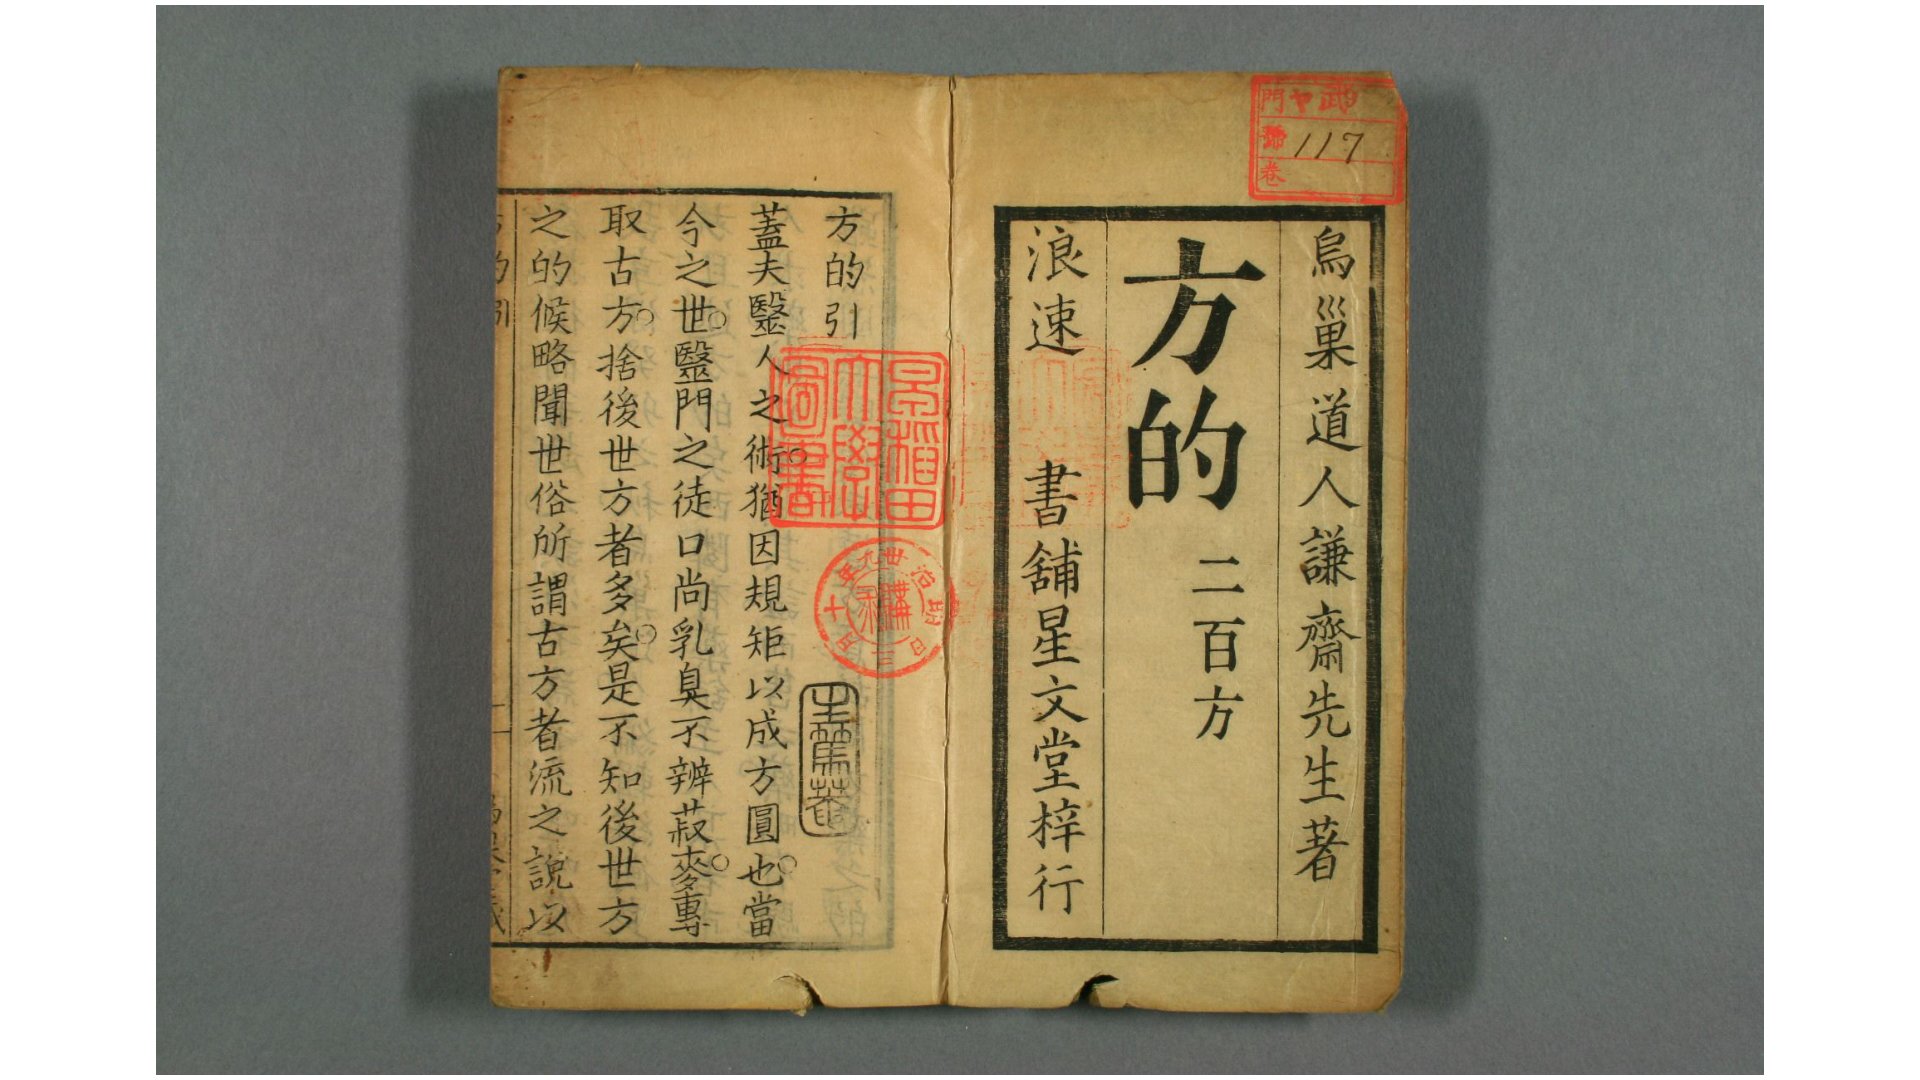 烏巢道人謙齋先生著
方的 二百方
浪速 書舖星文堂梓行
門 ヤ
號 117
卷
方的引
蓋夫醫人之術猶因規矩以成方圓也當
今之世醫門之徒口尚乳臭不辨菽麥專
取古方捨後世方者多矣是不知後世方
之的候略聞世俗所謂古方者流之說以
早稻田
大學
圖書
明治卅九年十月三日
購求